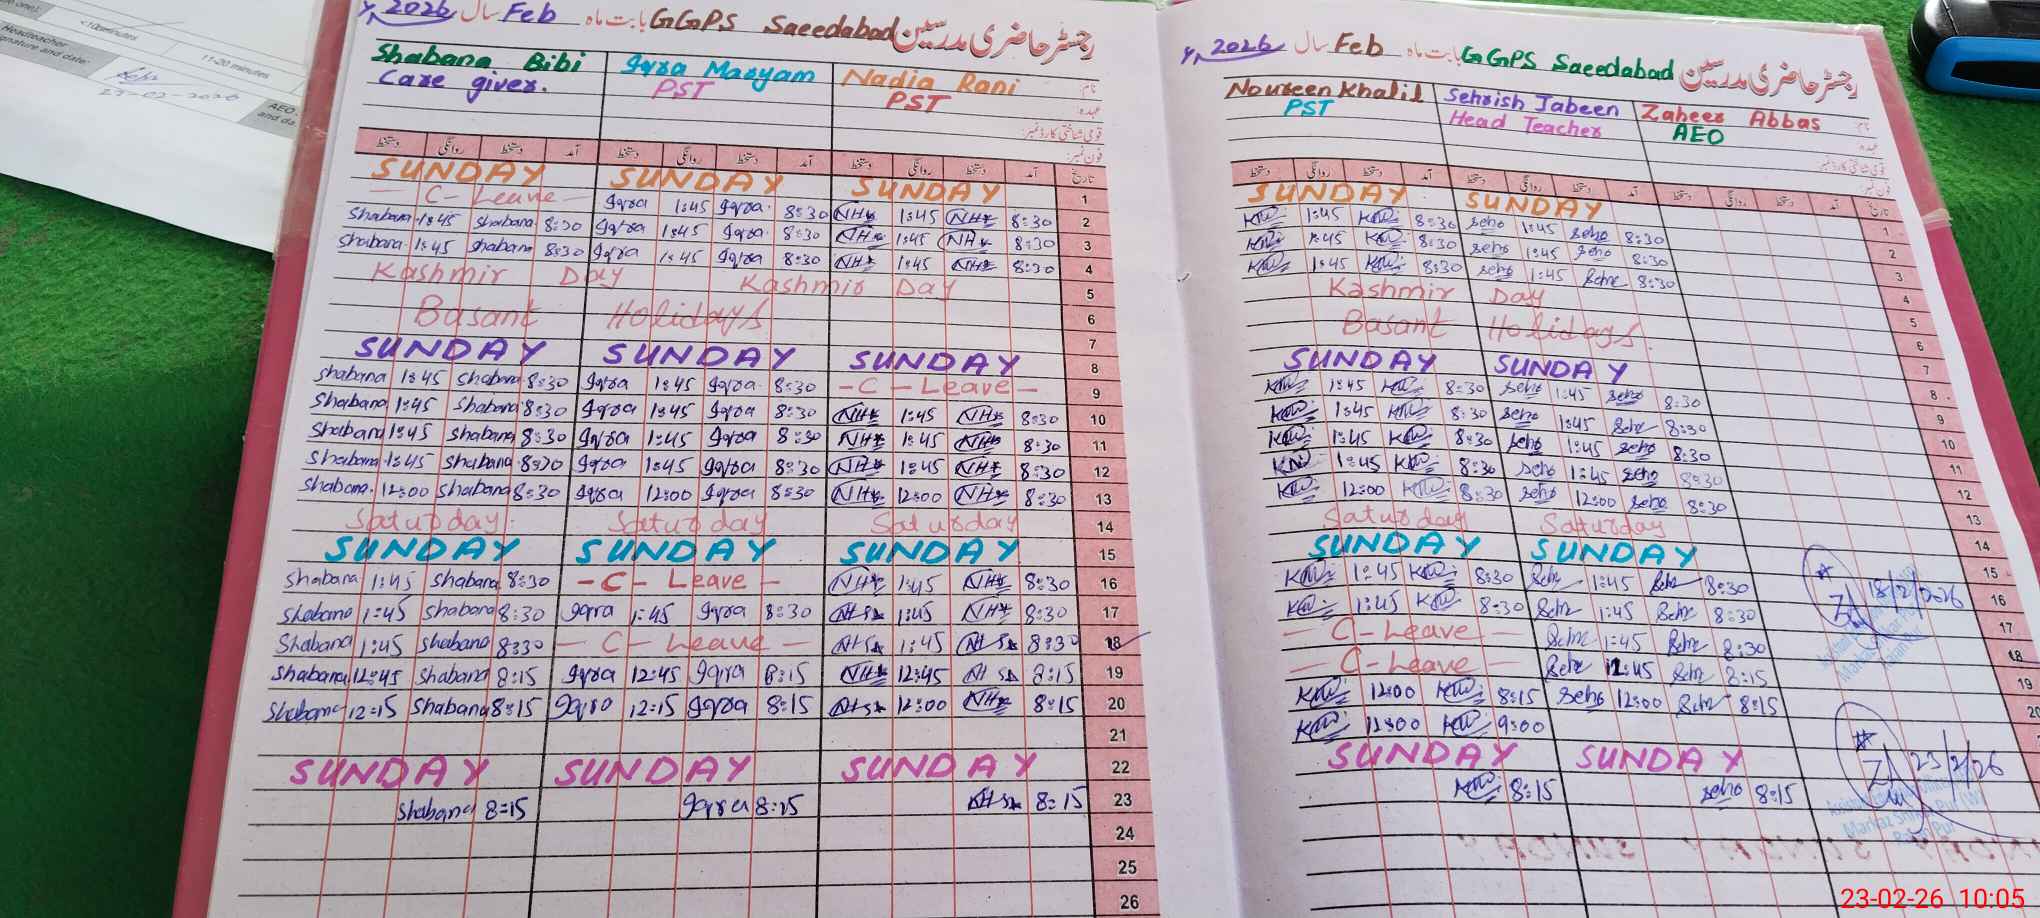 one).
<10minutes
Headteacher
signature and date:
11-20 minutes
Sehr
23-02-2026
AEO
and da
رجسٹر حاضری مدرسین GGPS Saeedabad بابت ماہ Feb سال 2026ء
نام:
Nadia Rani
Iqra Maryam
Shabana Bibi
عہدہ:
PST
PST
Care giver.
قومی شناختی کارڈ نمبر:
فون نمبر:
تاریخ آمد دستخط روانگی دستخط آمد دستخط روانگی دستخط آمد دستخط روانگی دستخط
SUNDAY SUNDAY SUNDAY 1
- C - Leave - Iqra 1:45 Iqra 8:30 NH 1:45 NH 8:30 2
Shabana 1:45 Shabana 8:30 Iqra 1:45 Iqra 8:30 NH 1:45 NH 8:30 3
Shabana 1:45 Shabana 8:30 Iqra 1:45 Iqra 8:30 NH 1:45 NH 8:30 4
Kashmir Day Kashmir Day 5
Basant Holidays 6
7
SUNDAY SUNDAY SUNDAY 8
Shabana 1:45 Shabana 8:30 Iqra 1:45 Iqra 8:30 - C - Leave - 9
Shabana 1:45 Shabana 8:30 Iqra 1:45 Iqra 8:30 NH 1:45 NH 8:30 10
Shabana 1:45 Shabana 8:30 Iqra 1:45 Iqra 8:30 NH 1:45 NH 8:30 11
Shabana 1:45 Shabana 8:30 Iqra 1:45 Iqra 8:30 NH 1:45 NH 8:30 12
Shabana 12:00 Shabana 8:30 Iqra 12:00 Iqra 8:30 NH 12:00 NH 8:30 13
Saturday Saturday Saturday 14
SUNDAY SUNDAY SUNDAY 15
Shabana 1:45 Shabana 8:30 - C - Leave - NH 1:45 NH 8:30 16
Shabana 1:45 Shabana 8:30 Iqra 1:45 Iqra 8:30 NH 1:45 NH 8:30 17
Shabana 1:45 Shabana 8:30 - C - Leave - NH 1:45 NH 8:30 18
Shabana 12:45 Shabana 8:15 Iqra 12:45 Iqra 8:15 NH 12:45 NH 8:15 19
Shabana 12:15 Shabana 8:15 Iqra 12:15 Iqra 8:15 NH 12:00 NH 8:15 20
21
SUNDAY SUNDAY SUNDAY 22
Shabana 8:15 Iqra 8:15 NH 8:15 23
24
25
26
رجسٹر حاضری مدرسین GGPS Saeedabad بابت ماہ Feb سال 2026ء
نام:
Zaheer Abbas
Sehrish Jabeen
Noureen Khalil
عہدہ:
AEO
Head Teacher
PST
قومی شناختی کارڈ نمبر:
فون نمبر:
تاریخ آمد دستخط روانگی دستخط آمد دستخط روانگی دستخط آمد دستخط روانگی دستخط
SUNDAY SUNDAY 1
KN 1:45 KN 8:30 Sehr 1:45 Sehr 8:30 2
KN 1:45 KN 8:30 Sehr 1:45 Sehr 8:30 3
KN 1:45 KN 8:30 Sehr 1:45 Sehr 8:30 4
Kashmir Day 5
Basant Holidays. 6
7
SUNDAY SUNDAY 8
KN 1:45 KN 8:30 Sehr 1:45 Sehr 8:30 9
KN 1:45 KN 8:30 Sehr 1:45 Sehr 8:30 10
KN 1:45 KN 8:30 Sehr 1:45 Sehr 8:30 11
KN 1:45 KN 8:30 Sehr 1:45 Sehr 8:30 12
KN 12:00 KN 8:30 Sehr 12:00 Sehr 8:30 13
Saturday Saturday 14
SUNDAY SUNDAY 15
KN 1:45 KN 8:30 Sehr 1:45 Sehr 8:30 16
KN 1:45 KN 8:30 Sehr 1:45 Sehr 8:30 17
- C - Leave - Sehr 1:45 Sehr 8:30 18
- C - Leave - Sehr 12:45 Sehr 8:15 19
KN 12:00 KN 8:15 Sehr 12:00 Sehr 8:15 20
KN 12:00 KN 9:00
SUNDAY SUNDAY
KN 8:15 Sehr 8:15
ZA 18/2/2026
ZA 23/2/26
Markaz
23-02-26 10:05